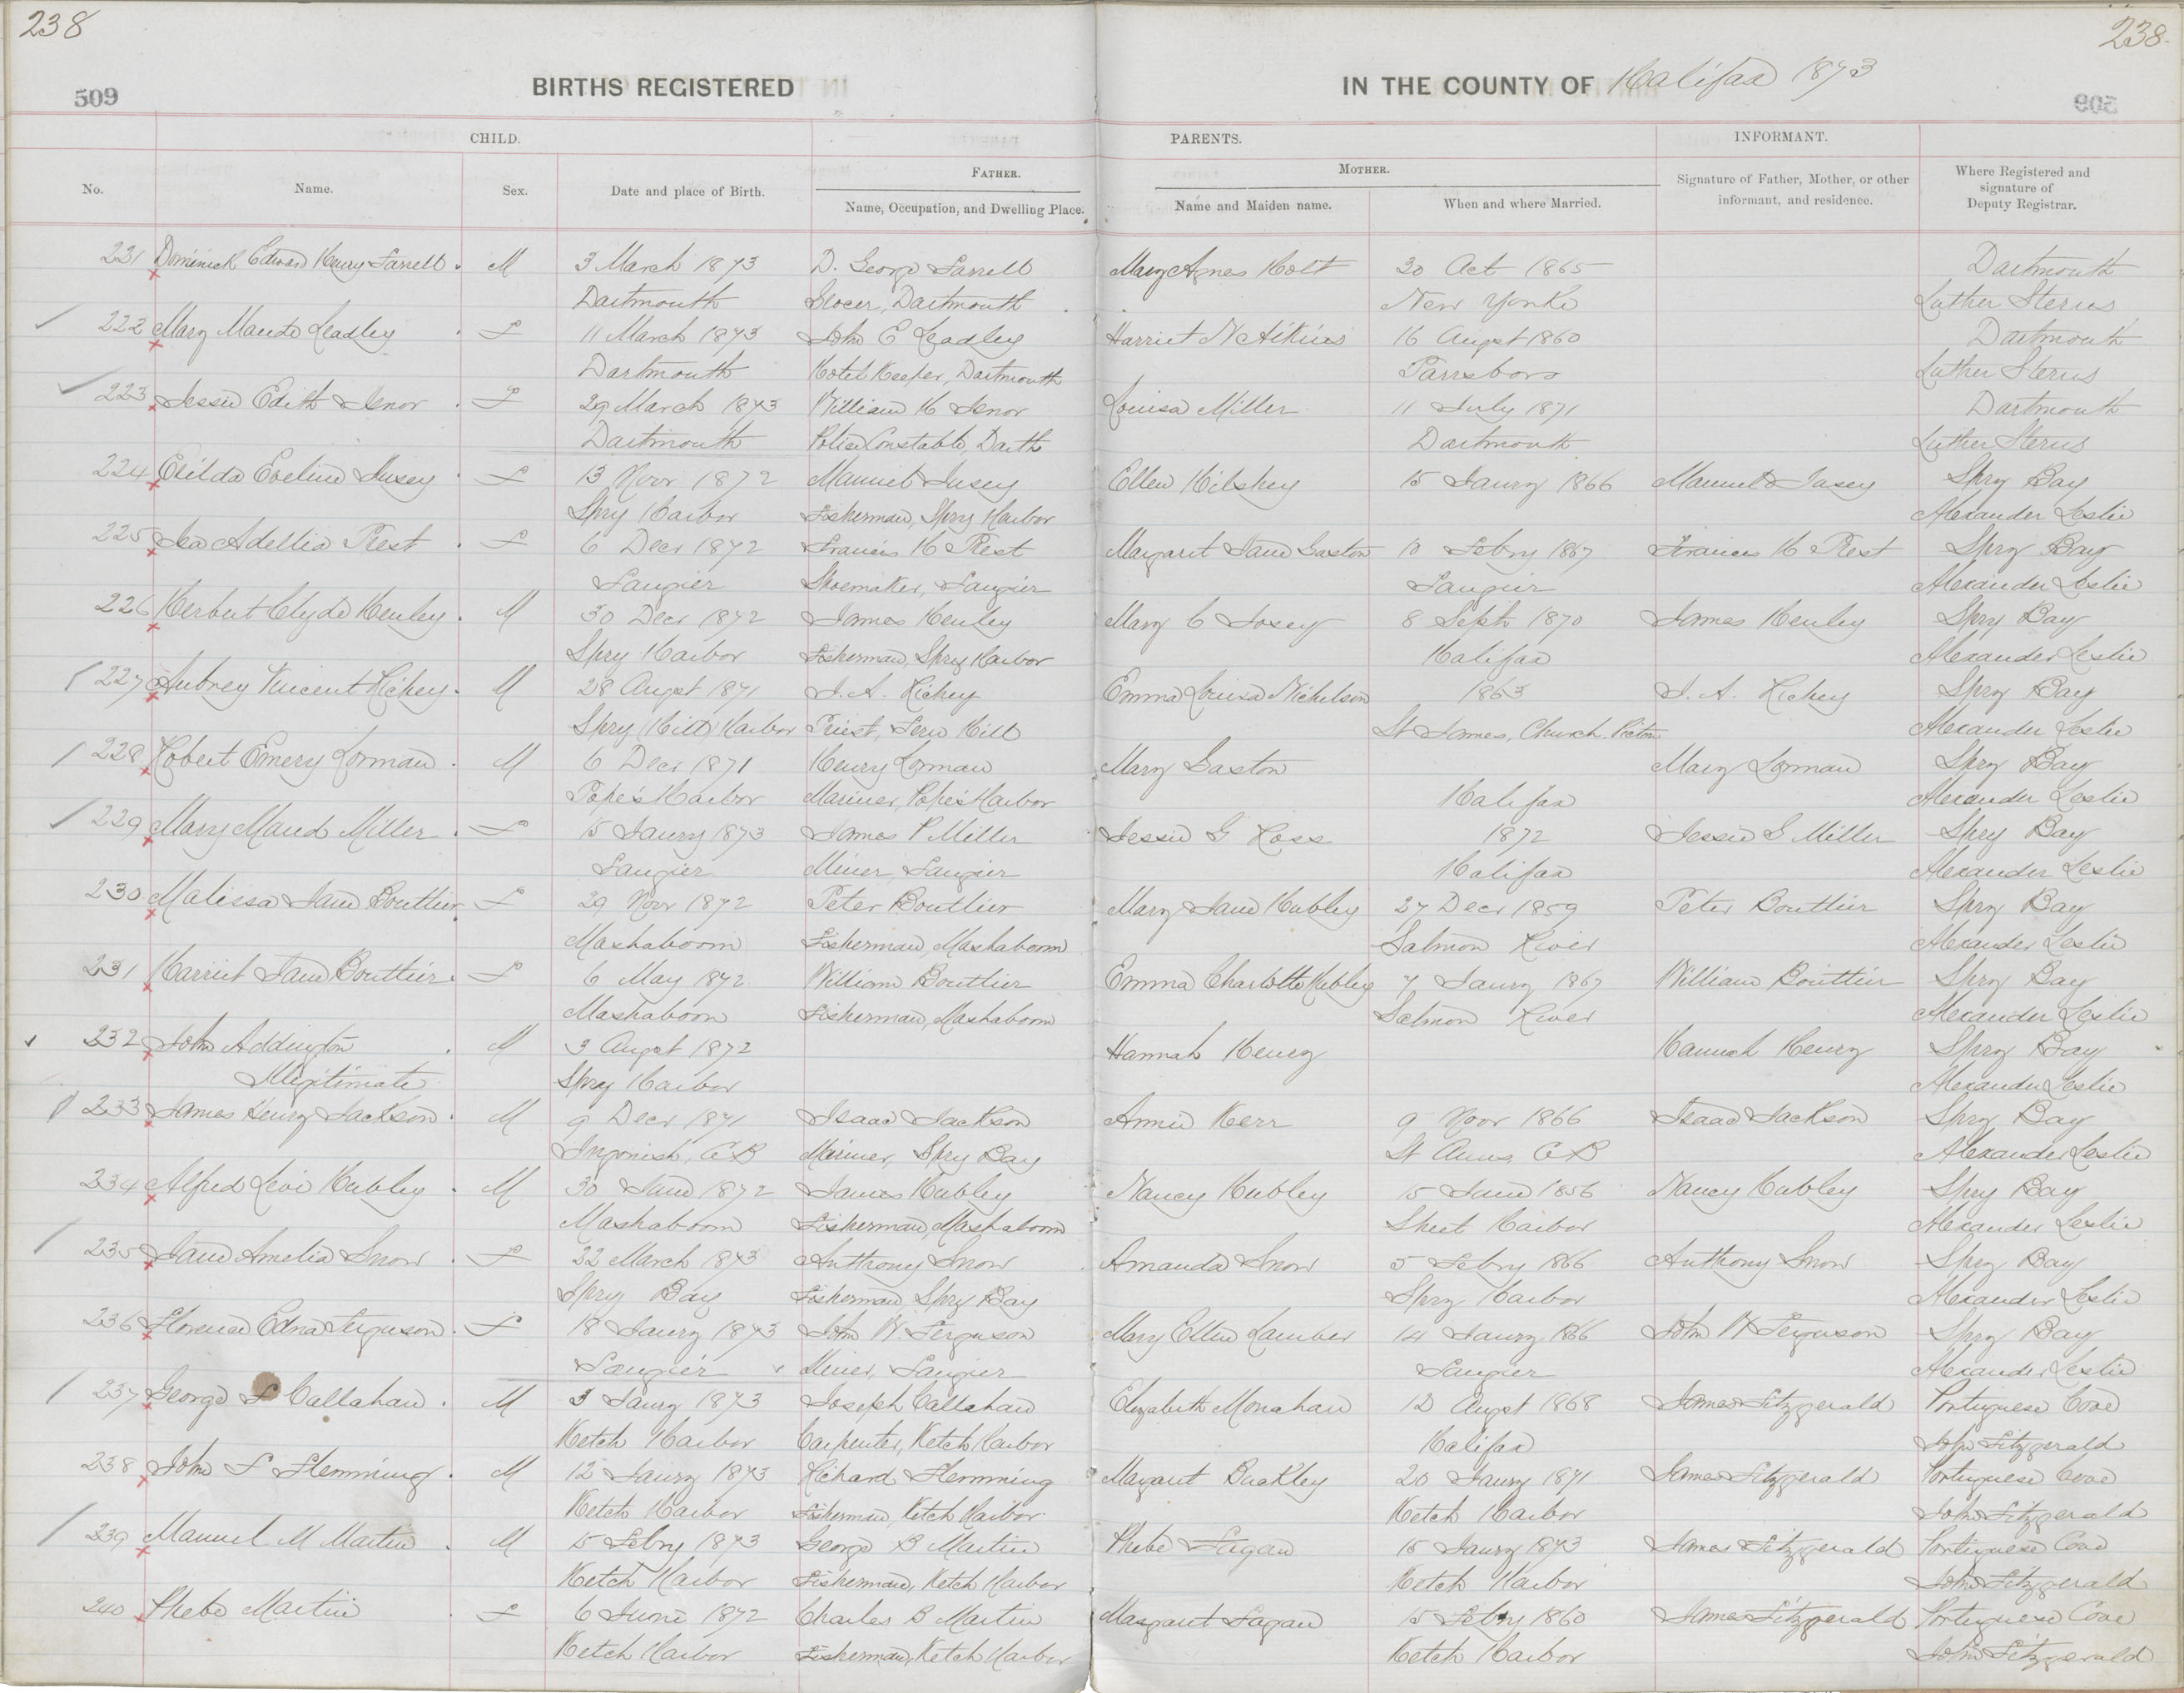 238
238
509
BIRTHS REGISTERED
IN THE COUNTY OF Halifax 1873
CHILD.
PARENTS.
INFORMANT.
No.
Name.
Sex.
Date and place of Birth.
FATHER.
Name, Occupation, and Dwelling Place.
MOTHER.
Name and Maiden name.
When and where Married.
Signature of Father, Mother, or other informant, and residence.
Where Registered and signature of Deputy Registrar.
221 Dominick Edward Henry Farrell M 3 March 1873 D. George Farrell Mary Agnes Holt 30 Oct 1865 Dartmouth
Dartmouth Grocer, Dartmouth New Yorke Luther Sterns
222 Mary Maude Leadley F 11 March 1873 John E Leadley Harriet N Aikins 16 Augst 1860 Dartmouth
Dartmouth Hotel Keeper, Dartmouth Parrsboro Luther Sterns
223 Jessie Edith Isnor F 29 March 1873 William H Isnor Louisa Miller 11 July 1871 Dartmouth
Dartmouth Police Constable, Darth Dartmouth Luther Sterns
224 Eveline F 13 Novr 1872 Ellen 15 Janry 1866 Spry Bay
Spry Harbor Fisherman, Spry Harbor Alexander Leslie
225 Adellia Prest F 6 Decr 1872 Francis H Prest Margaret Jane Gaston 10 Febry 1867 Francis H Prest Spry Bay
Tangier Shoemaker, Tangier Tangier Alexander Leslie
226 Herbert Clyde Henley M 30 Decr 1872 James Henley Mary C 8 Septr 1870 James Henley Spry Bay
Spry Harbor Fisherman, Spry Harbor Halifax Alexander Leslie
227 Aubrey Vincent Richey M 28 Augst 1871 J. A. Richey Emma Louisa Nickelson 1863 J. A. Richey Spry Bay
Spry Harbor Priest, Fern Hill St James, Church. Pictou Alexander Leslie
228 Robert Emery Lorman M 6 Decr 1871 Henry Lorman Mary Gaston Mary Lorman Spry Bay
Pope's Harbor Mariner, Pope's Harbor Halifax Alexander Leslie
229 Mary Maud Miller F 15 Janry 1873 James P Miller Jessie G Ross 1872 Jessie G Miller Spry Bay
Tangier Miner, Tangier Halifax Alexander Leslie
230 Malissa Jane Boutlier F 29 Novr 1872 Peter Boutlier Mary Jane Hubley 27 Decr 1859 Peter Boutlier Spry Bay
Mashaboom Fisherman, Mashaboom Salmon River Alexander Leslie
231 Harriet Jane Bouttier F 6 May 1872 William Boutlier Emma Charlotte Hubley 7 Janry 1867 William Boutlier Spry Bay
Mashaboom Fisherman, Mashaboom Salmon River Alexander Leslie
232 John Addington M 3 Augst 1872 Hannah Henry Hannah Henry Spry Bay
Illegitimate Spry Harbor Alexander Leslie
233 James Henry Jackson M 9 Decr 1871 Isaac Jackson Annie Kerr 9 Novr 1866 Isaac Jackson Spry Bay
Ingonish, C B Mariner, Spry Bay St Anns C B Alexander Leslie
234 Alfred Levi Hubley M 30 June 1872 James Hubley Nancy Hubley 15 June 1856 Nancy Hubley Spry Bay
Mashaboom Fisherman, Mashaboom Sheet Harbor Alexander Leslie
235 Jane Amelia Snow F 22 March 1873 Anthony Snow Amanda Snow 5 Febry 1866 Anthony Snow Spry Bay
Spry Bay Fisherman, Spry Bay Spry Harbor Alexander Leslie
236 Florence Edna Ferguson F 18 Janry 1873 John W. Ferguson Mary Ellen 14 Janry 1866 John W Ferguson Spry Bay
Tangier Miner, Tangier Tangier Alexander Leslie
237 George F Callahan M 3 Janry 1873 Joseph Callahan Elizabeth Monahan 12 Augst 1868 James Fitzgerald Portuguese Cove
Ketch Harbor Carpenter, Ketch Harbor Halifax John Fitzgerald
238 John F Flemming M 12 Janry 1873 Richard Flemming Margaret Buckley 20 Janry 1871 James Fitzgerald Portuguese Cove
Ketch Harbor Fisherman, Ketch Harbor Ketch Harbor John Fitzgerald
239 Manuel M Martin M 15 Febry 1873 George B Martin Phebe Fagan 15 Janry 1873 James Fitzgerald Portuguese Cove
Ketch Harbor Fisherman, Ketch Harbor Ketch Harbor John Fitzgerald
240 Phebe Martin F 6 June 1872 Charles B Martin Margaret Fagan 15 Febry 1860 James Fitzgerald Portuguese Cove
Ketch Harbor Fisherman, Ketch Harbor Ketch Harbor John Fitzgerald